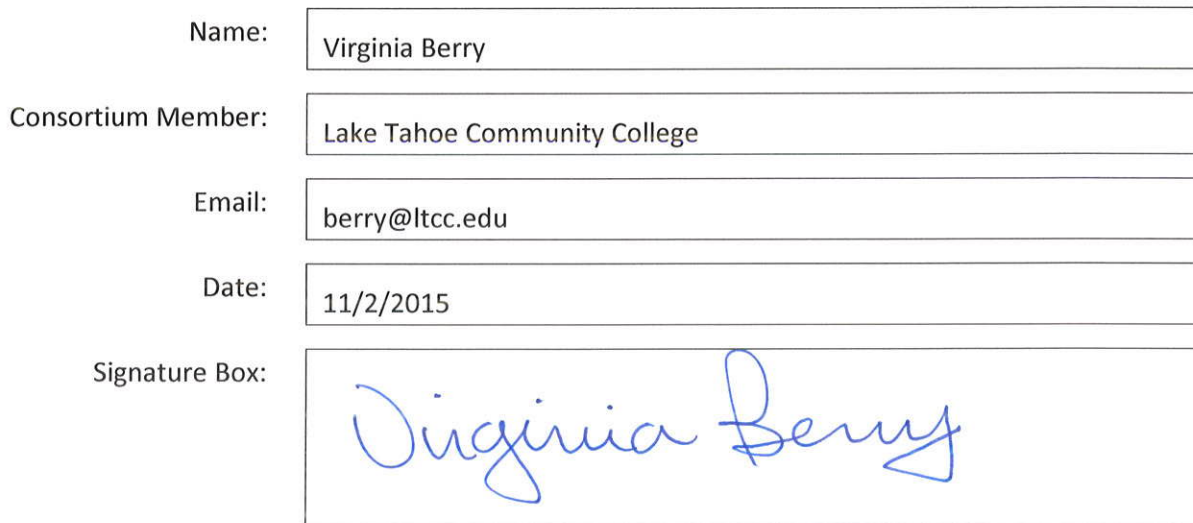 Name: Virginia Berry
Consortium Member: Lake Tahoe Community College
Email: berry@ltcc.edu
Date: 11/2/2015
Signature Box: Virginia Berry